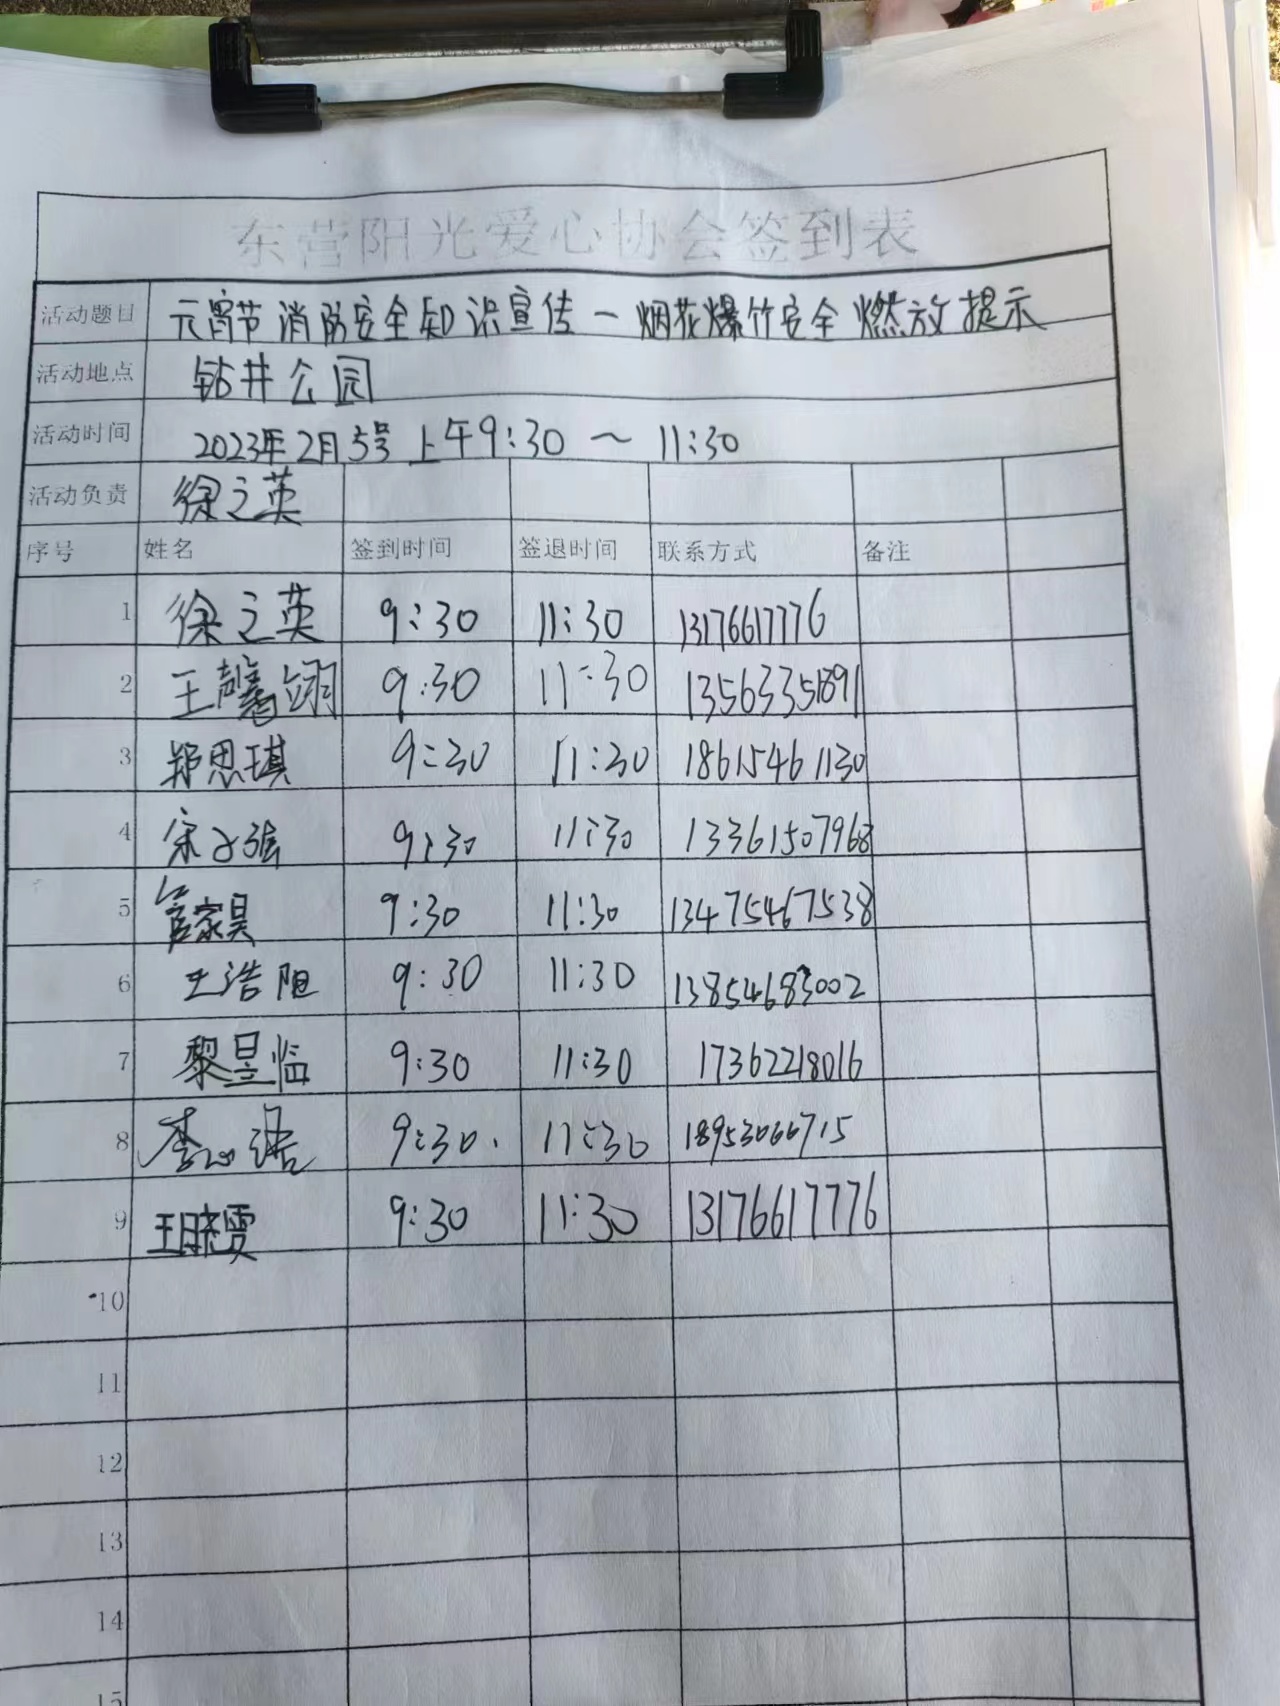 东营阳光爱心协会签到表
活动题目 元宵节消防安全知识宣传-烟花爆竹安全燃放提示
活动地点 钻井公园
活动时间 2023年2月5号上午9:30~11:30
活动负责 徐之英
序号 姓名 签到时间 签退时间 联系方式 备注
1 徐之英 9:30 11:30 13176617776
2 王馨翊 9:30 11:30 13563351891
3 郑思琪 9:30 11:30 18615461130
4 宋子弦 9:30 11:30 13361507968
5 管家昊 9:30 11:30 13475467538
6 王浩阳 9:30 11:30 13854683002
7 黎昱临 9:30 11:30 17362218016
8 李心语 9:30. 11:30 18953066715
9 王晓雯 9:30 11:30 13176617776
10
11
12
13
14
15